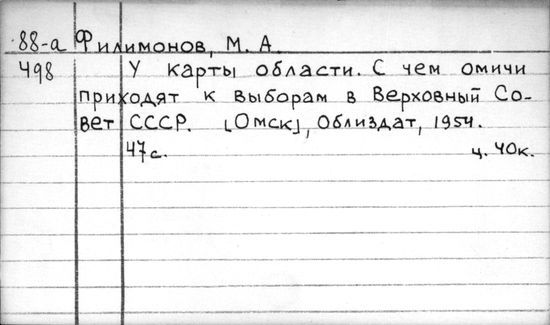 88-а Филимонов, М. А.
498 У карты области. С чем омичи
приходят к выборам в Верховный Со-
вет СССР. [Омск], Облиздат, 1954.
47с. ц. 40к.